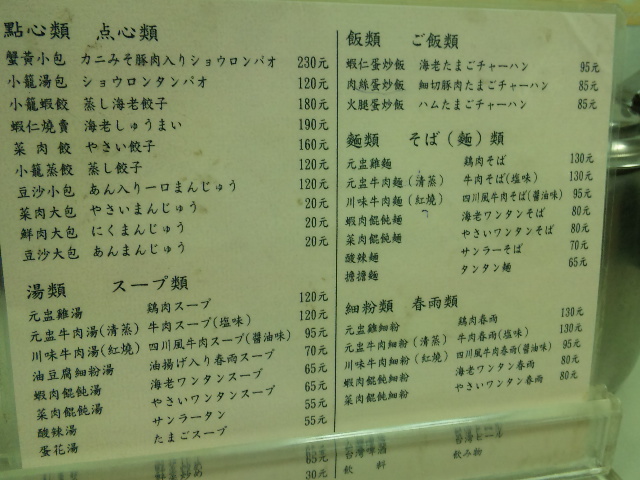 點心類　点心類
蟹黃小包 カニみそ豚肉入りショウロンパオ 230元
小籠湯包 ショウロンタンパオ 120元
小籠蝦餃 蒸し海老餃子 180元
蝦仁燒賣 海老しゅうまい 190元
菜肉餃 やさい餃子 160元
小籠蒸餃 蒸し餃子 120元
豆沙小包 あん入り一口まんじゅう 120元
菜肉大包 やさいまんじゅう 20元
鮮肉大包 にくまんじゅう 20元
豆沙大包 あんまんじゅう 20元
湯類　スープ類
元盅雞湯 鶏肉スープ 120元
元盅牛肉湯(清蒸) 牛肉スープ(塩味) 120元
川味牛肉湯(紅燒) 四川風牛肉スープ(醬油味) 95元
油豆腐細粉湯 油揚げ入り春雨スープ 70元
蝦肉餛飩湯 海老ワンタンスープ 65元
菜肉餛飩湯 やさいワンタンスープ 65元
酸辣湯 サンラータン 55元
蛋花湯 たまごスープ 55元
30元
飯類　ご飯類
蝦仁蛋炒飯 海老たまごチャーハン 95元
肉絲蛋炒飯 細切豚肉たまごチャーハン 85元
火腿蛋炒飯 ハムたまごチャーハン 85元
麵類　そば(麵)類
元盅雞麵 鶏肉そば 130元
元盅牛肉麵(清蒸) 牛肉そば(塩味) 130元
川味牛肉麵(紅燒) 四川風牛肉そば(醬油味) 95元
蝦肉餛飩麵 海老ワンタンそば 80元
菜肉餛飩麵 やさいワンタンそば 80元
酸辣麵 サンラーそば 70元
擔擔麵 タンタン麵 65元
細粉類　春雨類
元盅雞細粉 鶏肉春雨 130元
元盅牛肉細粉(清蒸) 牛肉春雨(塩味) 130元
川味牛肉細粉(紅燒) 四川風牛肉春雨(醬油味) 95元
蝦肉餛飩細粉 海老ワンタン春雨 80元
菜肉餛飩細粉 やさいワンタン春雨 80元
台灣啤酒 台湾ビール
飲料 飲み物